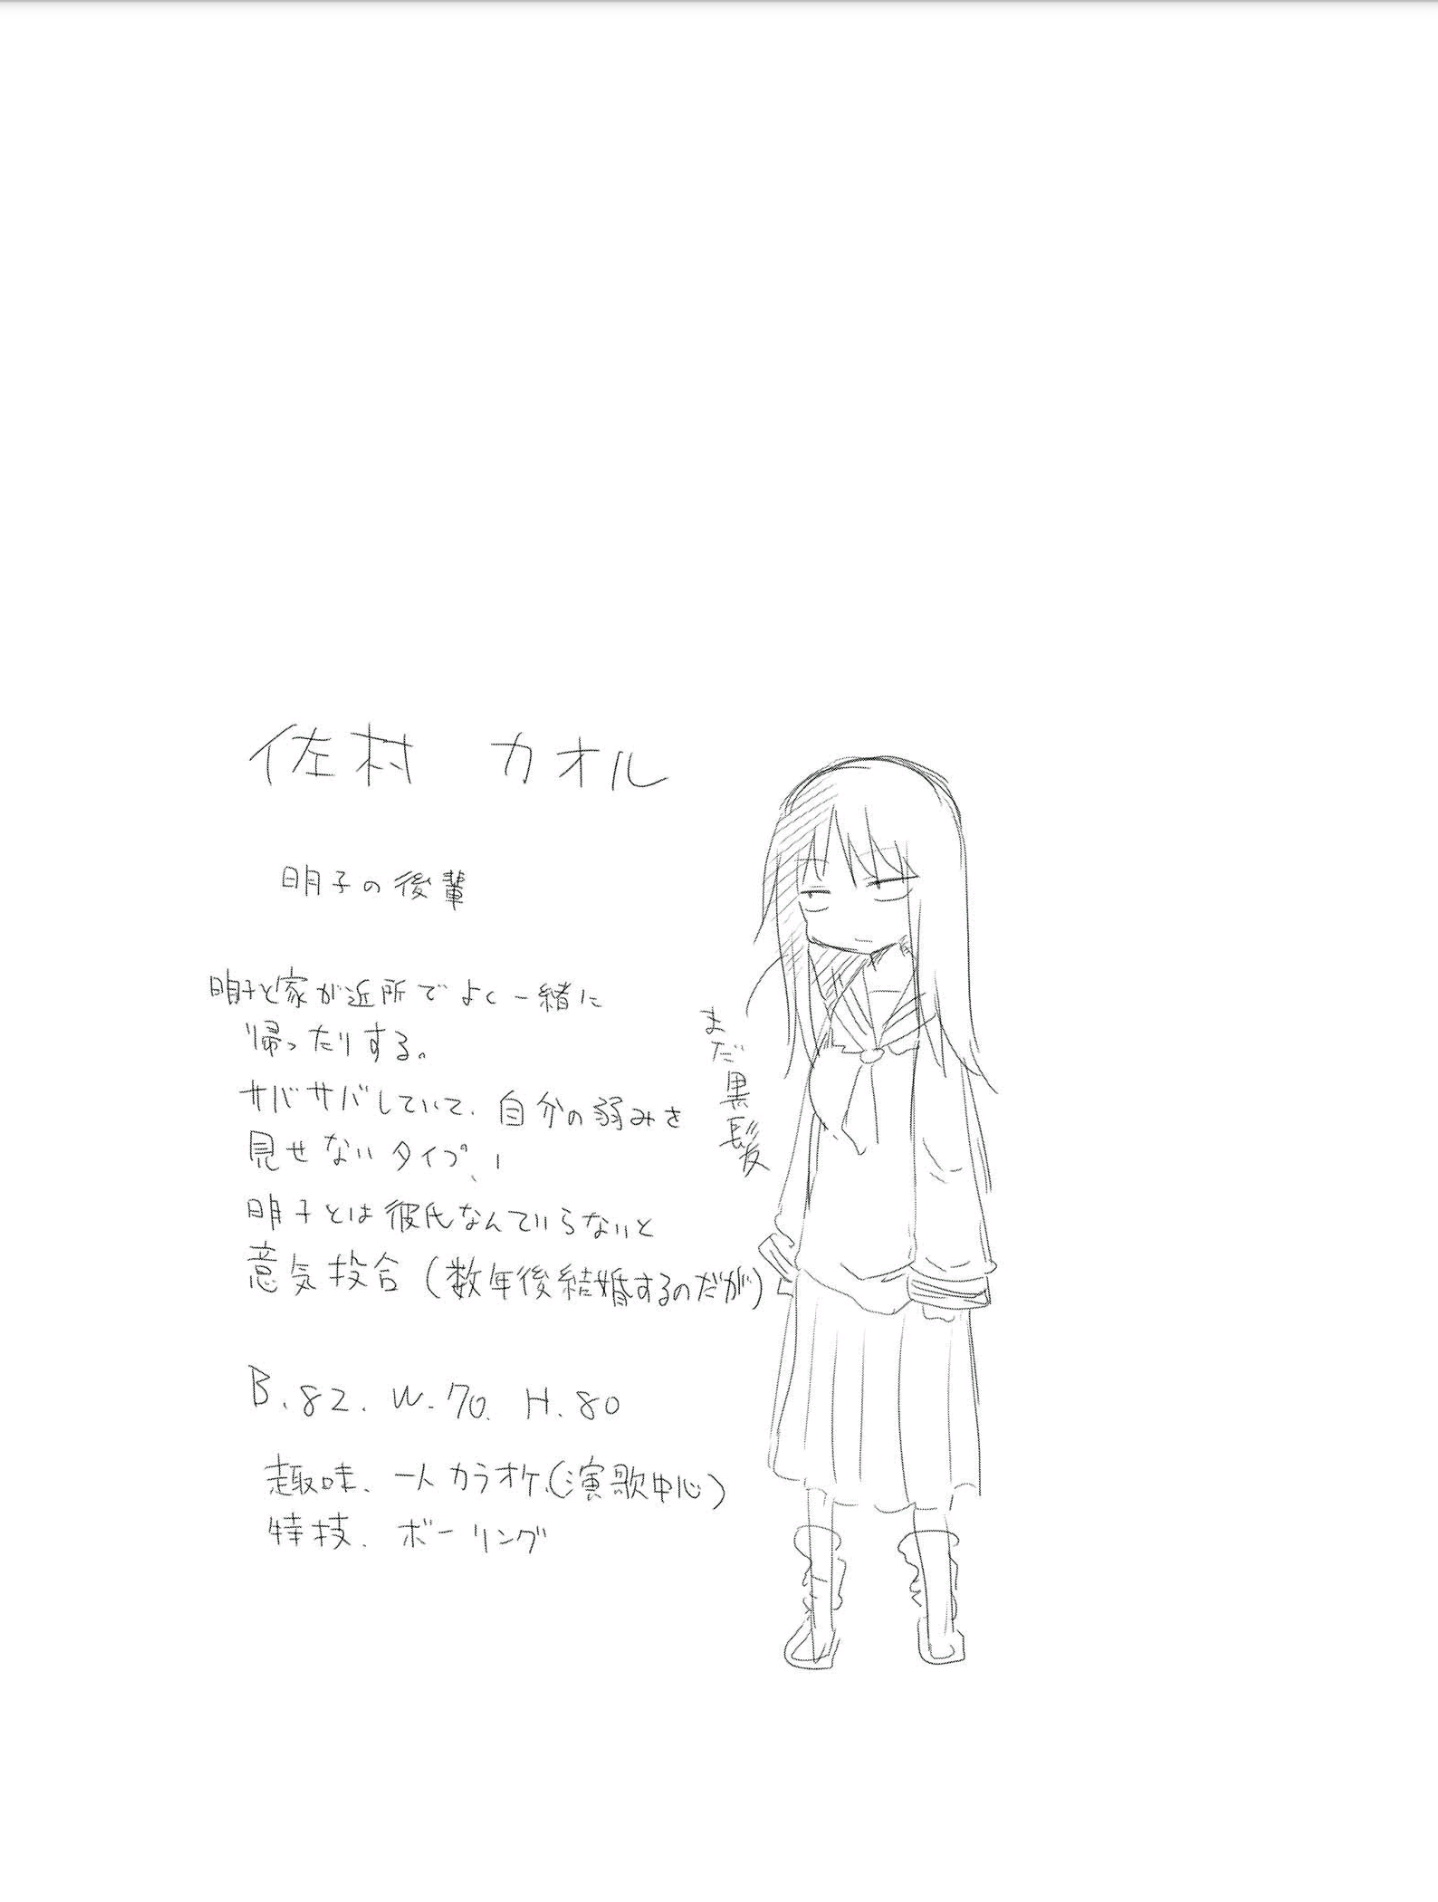 佐村 カオル
明子の後輩
明子と家が近所でよく一緒に
帰ったりする。
サバサバしていて、自分の弱みを
見せないタイプ、
明子とは彼氏なんていらないと
意気投合(数年後結婚するのだが)
まだ黒髪
B.82. W.70. H.80
趣味、一人カラオケ(演歌中心)
特技、ボーリング